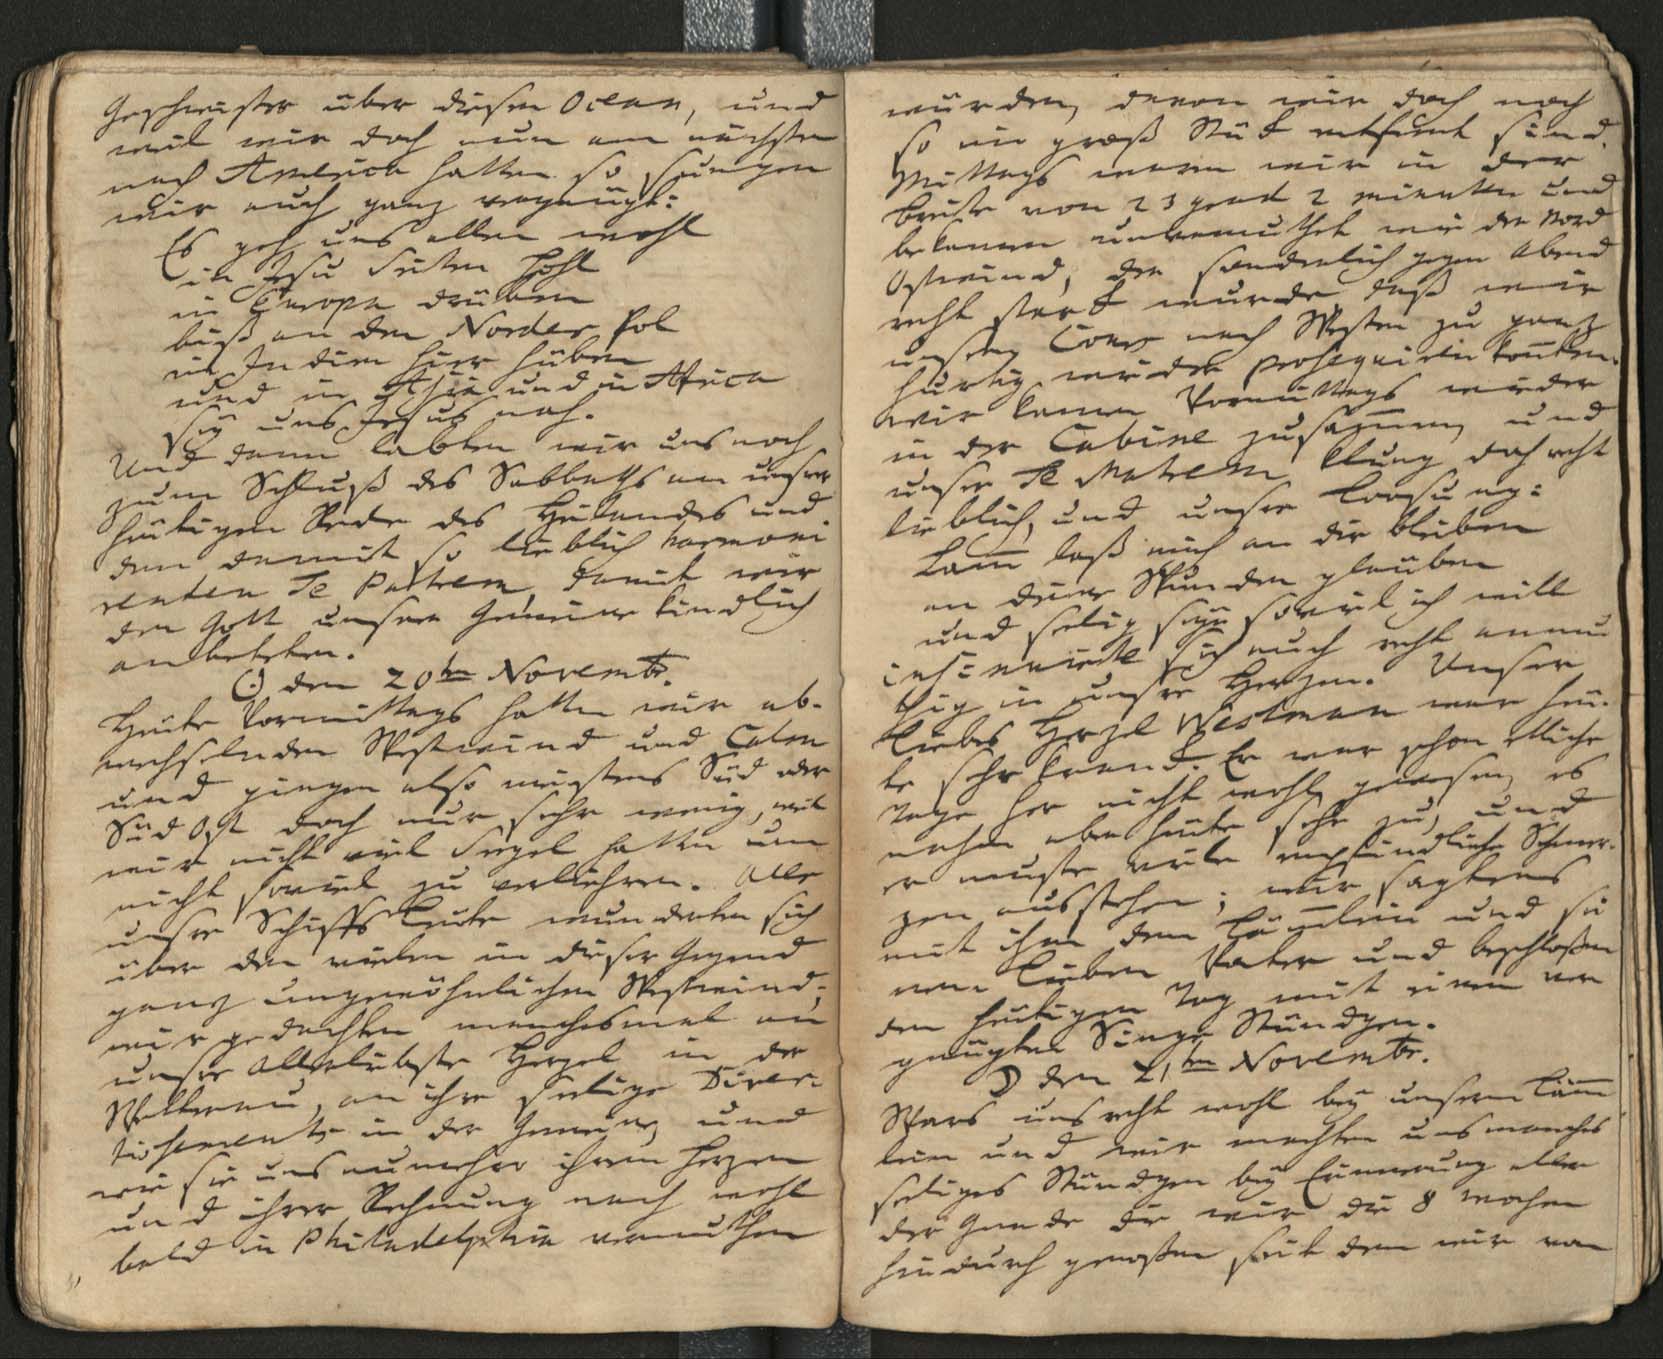 Geschwister über diesen Ocean, und
weil wir doch nun am nächsten
nach America hatten so sungen
wir auch ganz vergnügt:
Es geh uns allen wohl
in Jesu Seiten Höhl
in Europa drüben
biß an den Norder Pol
in Indien hier hüben
und in Asia und in Africa
sey uns Jesus nah.
Und dann labten wir uns noch
zum Schluß des Sabbaths an unsrer
heutigen Rede des Heilandes und
dem damit so lieblich harmoni
renten Te Patrem, damit wir
den Gott unsrer Gemeine kindlich
anbeteten.
☉ den 20ten Novembr.
Heute Vormittags hatten wir ab-
wechselnden Westwind und Calm
und gingen also meistens Süd oder
Süd Ost doch nur sehr wenig, weil
wir nicht viel Segel hatten um
nicht soviel zu verliehren. Alle
unsre Schiffs Leute wunderten sich
über den vielen in dieser Gegend
ganz ungewöhnlichen Westwind;
wir gedachten manchesmal an
unsre allerliebste Herzel in der
Wetterau, an ihre seelige Diver-
tissements in der Gemeine, und
wie sie uns nunmehro ihrem Herzen
und ihrer Rechnung nach wohl
bald in Philadelphia vermuthen
würden, davon wir doch noch
so ein groß Stük entfernt sind.
Mittags waren wir in der
Breite von 23 grad 2 minuten und
bekamen unvermuthet wie den Nord
Ostwind, der sonderlich gegen Abend
recht stark wurde, daß wir
unsern Cours nach Westen zu ganz
hurtig wieder prosequiren konten.
Wir kamen Vormittags wieder
in der Cabine zusammen, und
unser Te Matrem klung doch recht
lieblich, und unsre Loosung:
Lam̅ laß mich an dir bleiben
an deine Wunden gläuben
und seelig seyn soviel ich will
insinuirte sich auch recht anmu
thig in unsre Herzen. Unser
liebes Herzel Westman war heu-
te sehr krank. Er war schon etliche
Tage her nicht wohl gewesen, es
nahm aber heute sehr zu, und
er muste viele empfindliche Schmer-
zen ausstehen; wir sagtens
mit ihm dem Läm̅lein und sei
nem lieben Vater und beschloßen
den heutigen Tag mit einem ver
gnügten Singe Stündgen.
☽ den 21ten Novembr.
Wars uns recht wohl bey unserm Läm̅
lein und wir machten uns manches
seeliges Stündgen bey Erinnerung aller
der Gnade die wir die 8 Wochen
hindurch genoßen seit dem wir von